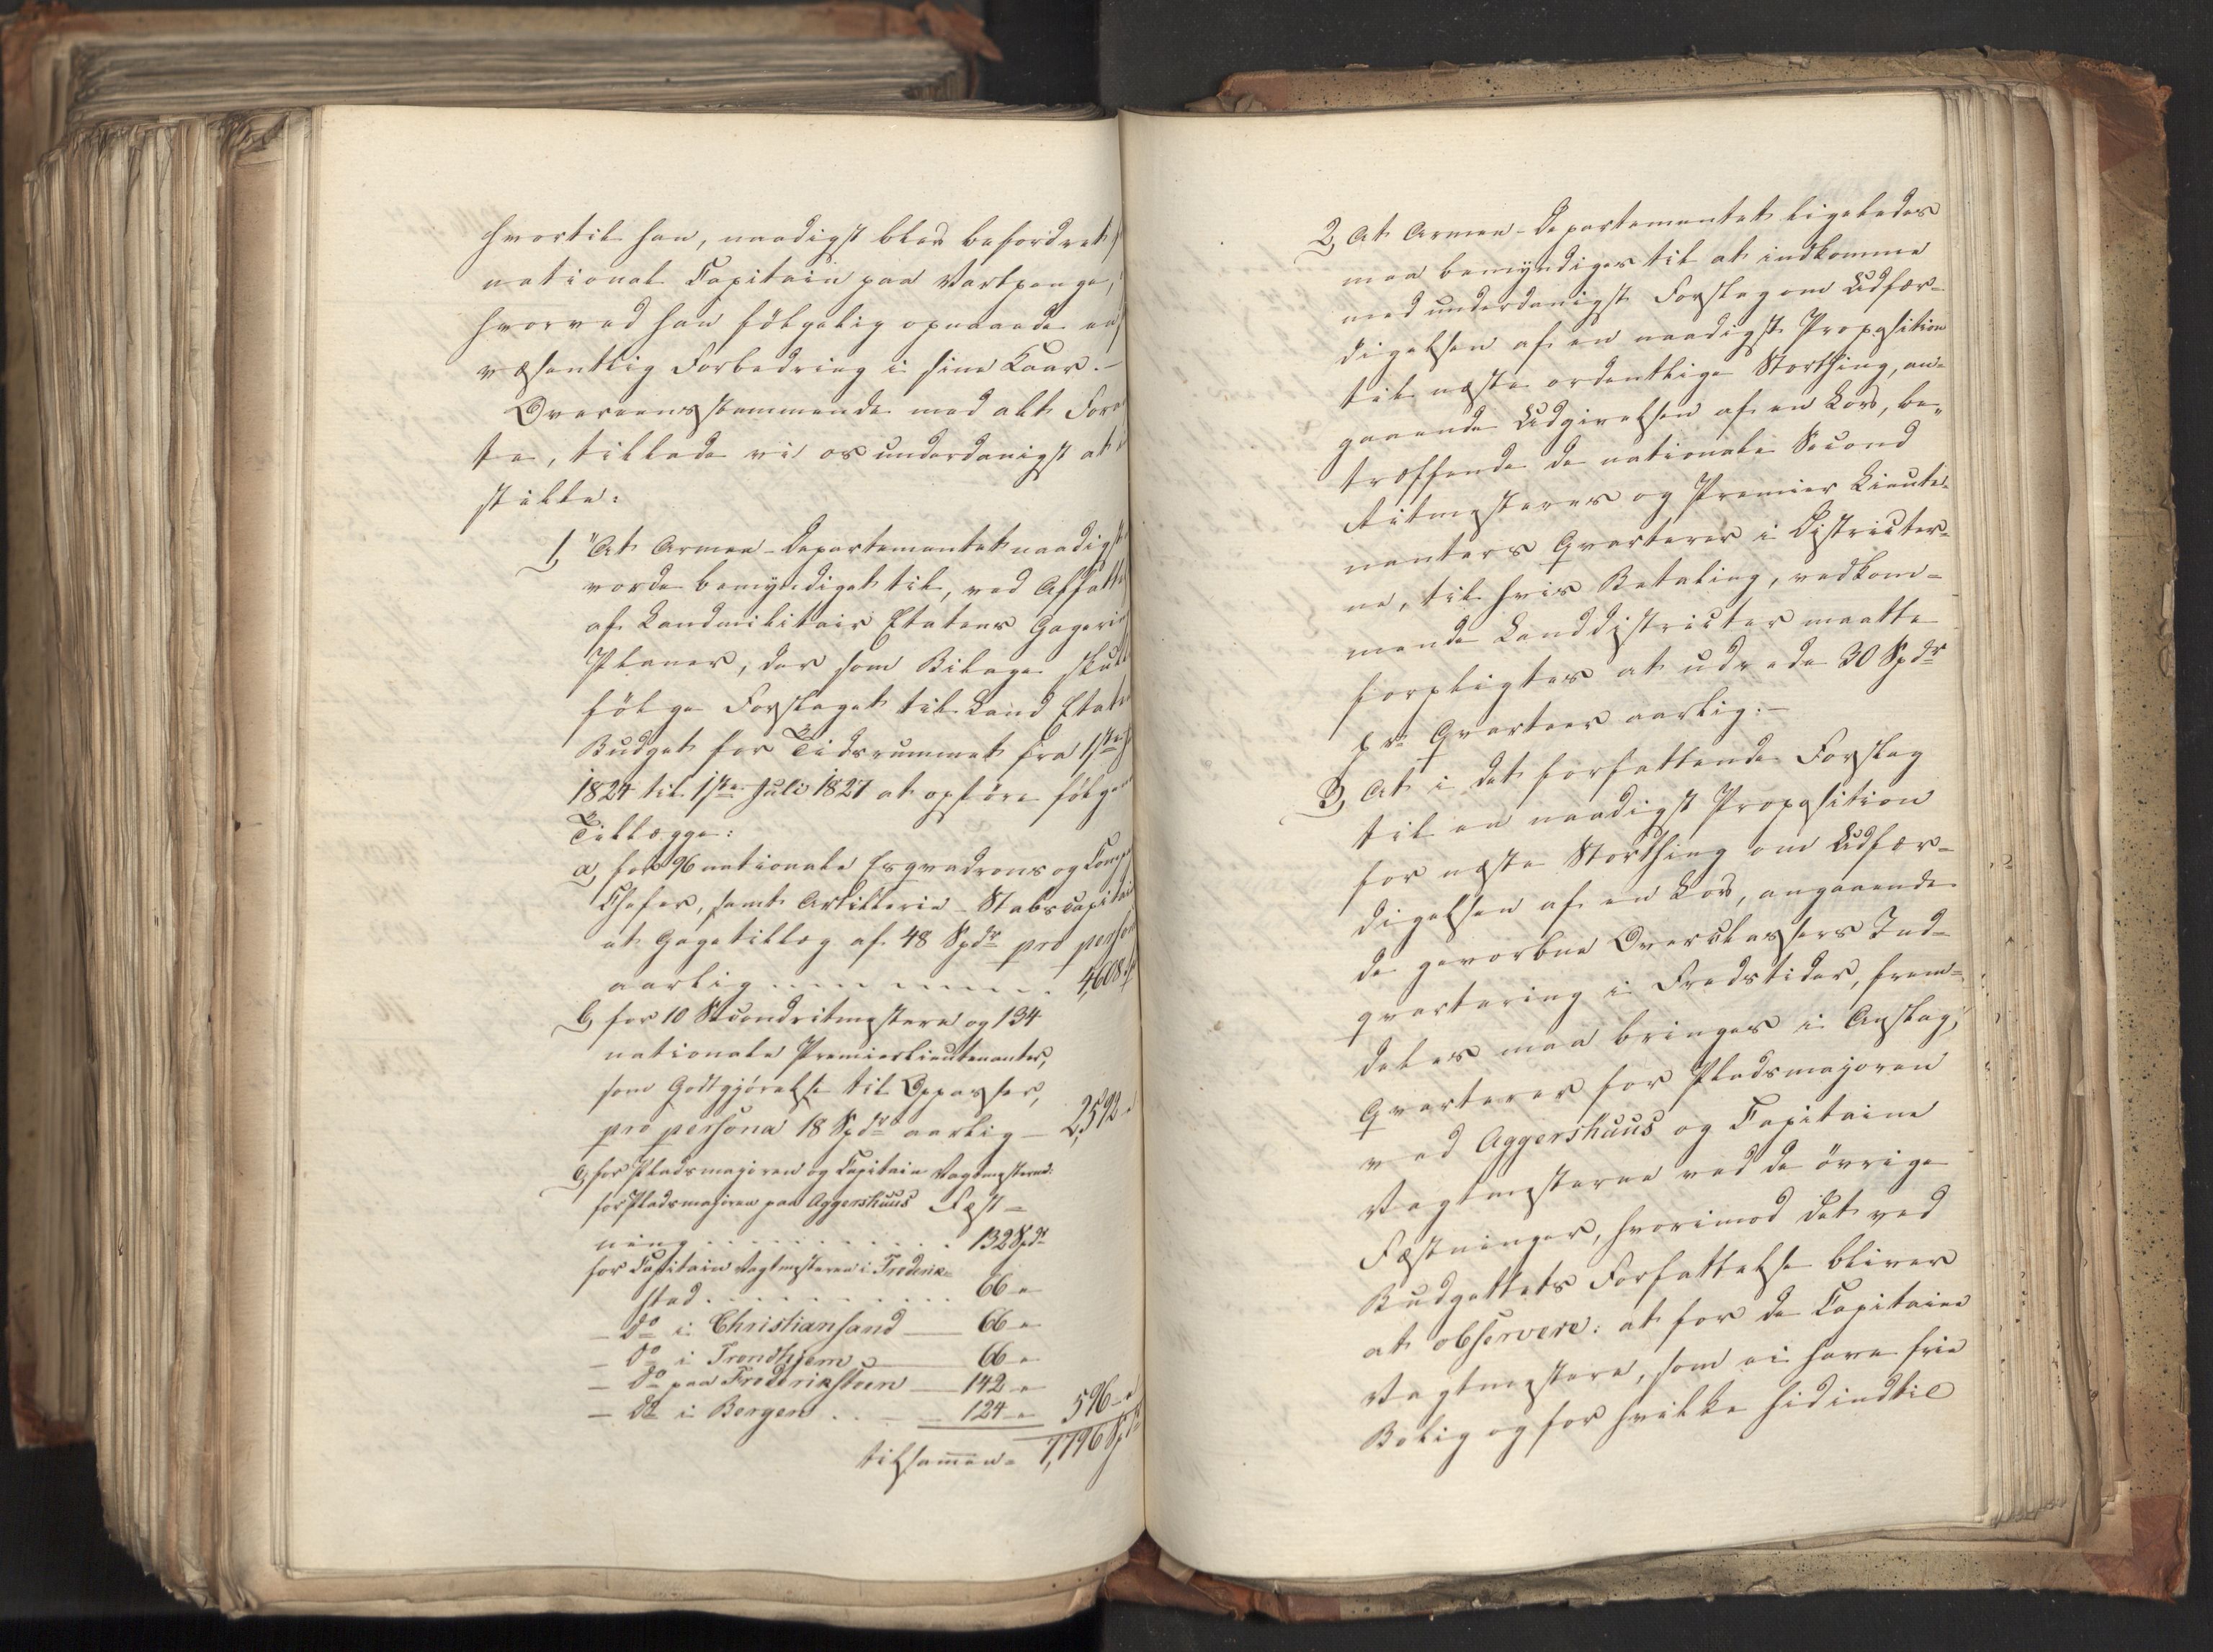 hvortil han, naadigst blev befordret
national Capitain paa Vartpenge,
hvorved han fölgelig opnaaede en
væsentlig Forbedring i sine Kaar. —
Overeensstemmende med alt Foran
te, tillade vi os underdanigst at
stille:
1, "At Armee-Departementet naadigst
vorde bemyndiget til, ved Affatt
af Landmilitair Etatens Gagerings
Planer, der som Bilage skulle
fölge Forslaget til Land Etatens
Budget for Tidsrummet fra 1ste
1824 til 1ste Juli 1827 at opföre fölgende
Tillægge:
a, for 96 nationale Esqvadrons og Comp
Chefer, samt Artillerie-Stabscapitain
et Gagetillæg af 48 Spdr pro person
aarlig ..... 4,608
b, for 10 Secondritmestere og 134
nationale Premierlieutenanter,
som Godtgjörelse til Oppasser,
pro persona 18 Spdr aarlig — 2,592 "
c, for Pladsmajoren og Capitain Vagtmesterne:
for Pladsmajoren paa Aggershuus Fæst=
ning . . . . . . . . . . 132 Spdr
for Capitain Vagtmesteren i Frederik=
stad . . . . . . . . . . 66 "
— do i Christiansand — 66 "
— do i Trondhjem — 66 "
— do paa Frederiksteen — 142 "
— do i Bergen . . — 124 " 596 "
tilsammen = 7,796 Sp
2, At Armee-Departementet ligeledes
maa bemyndiges til at indkomme
med underdanigst Forslag om Udfær=
digelsen af en naadigst Proposition
til næste ordentlige Storthing, an=
gaaende Udgivelsen af en Lov, be=
træffende de nationale Second
Ritmesteres og Premier Lieute=
nanters Qvarterer i Districter=
ne, til hvis Betaling, vedkom=
mende Landdistricter maatte
forpligtes at udrede 30 Spdr
pr. Qvarteer aarlig. —
3, At i det forfattende Forslag
til en naadigst Proposition
for næste Storthing om Udfær=
digelsen af en Lov, angaaende
de gevorbne Overclassers Ind=
qvartering i Fredstider, frem=
deles maa bringes i Anslag,
Qvarterer for Pladsmajoren
ved Aggershuus og Capitaine
Vagtmesterne ved de övrige
Fæstninger, hvorimod det ved
Budgettets Forfattelse bliver
at observere: at for de Capitaine
Vagtmestere, som ei have frie
Bolig og for hvilke hidindtil